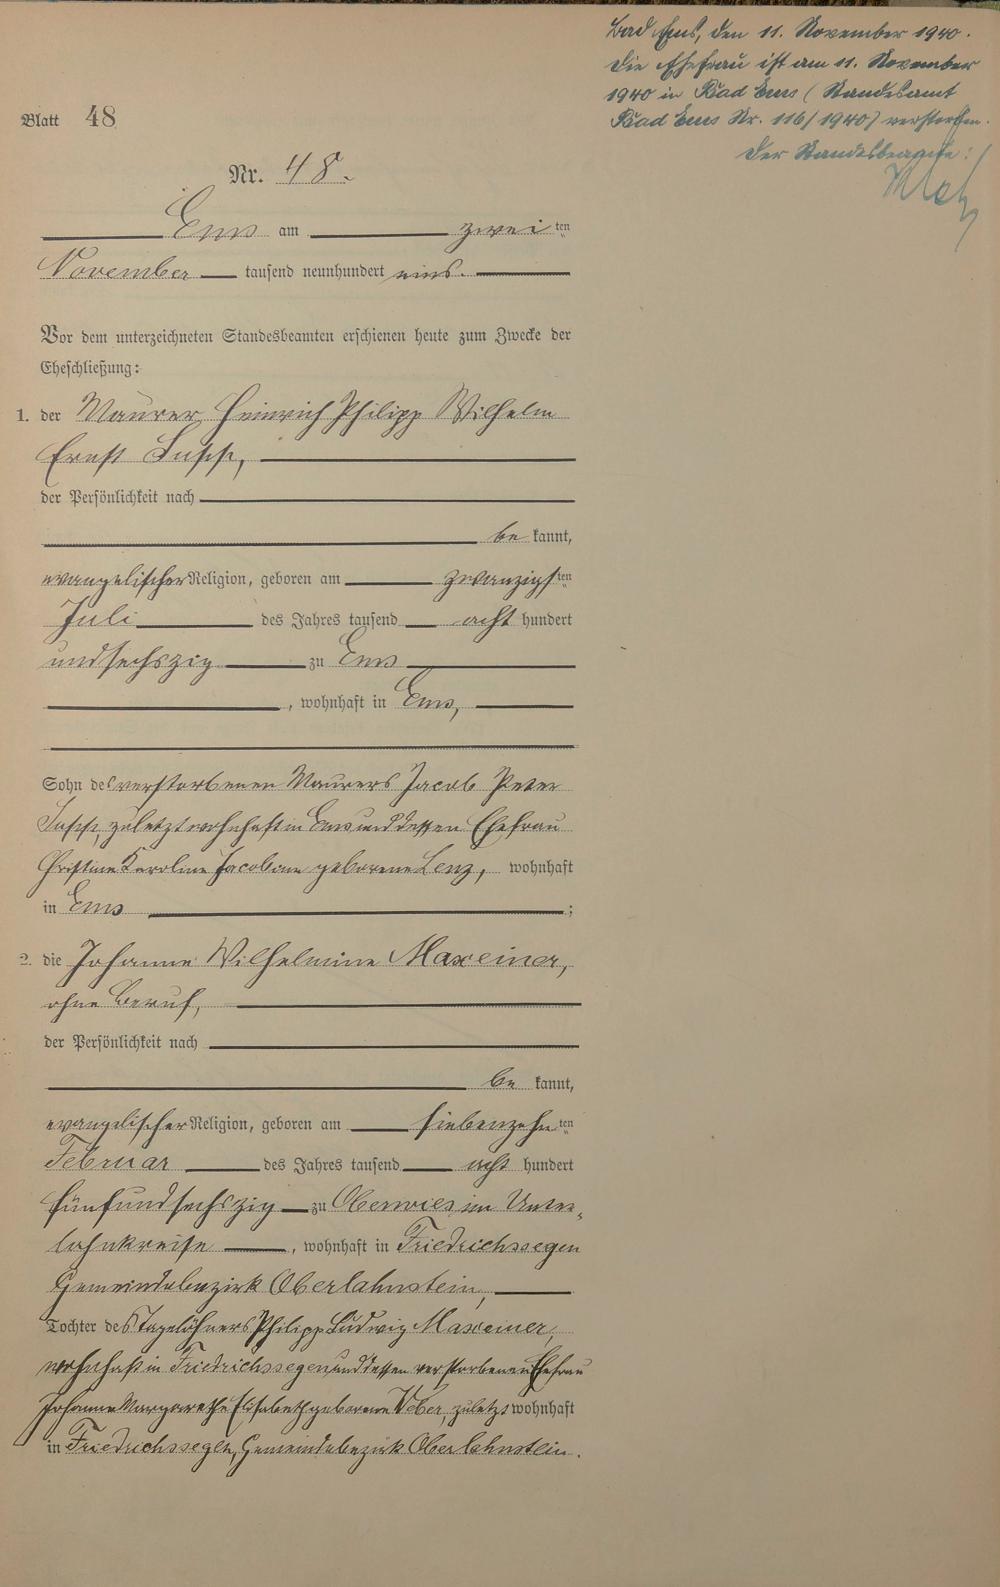 Bad Ems, den 11. November 1940.
Die Ehefrau ist am 11. November
1940 in Bad Ems (Standesamt
Bad Ems Nr. 116/1940) verstorben.
Der Standesbeamte:
Blatt 48
Nr. 48.
Ems am zwei ten
November tausend neunhundert eins.
Vor dem unterzeichneten Standesbeamten erschienen heute zum Zwecke der
Eheschließung:
1. der Maurer Heinrich Philipp Wilhelm
Ernst
der Persönlichkeit nach
be kannt,
evangelischer Religion, geboren am zwanzigs ten
Juli des Jahres tausend acht hundert
undsechszig zu Ems
, wohnhaft in Ems,
Sohn des verstorbenen Maurers Jacob Peter
zuletzt wohnhaft in Ems und dessen Ehefrau
Christine Karoline Jacobine geborene Lenz, wohnhaft
in Ems ;
2. die Johanne Wilhelmine Maxeiner,
ohne Beruf,
der Persönlichkeit nach
be kannt,
evangelischer Religion, geboren am siebenzehn ten
Februar des Jahres tausend acht hundert
fünfundsechszig zu Oberwies im Unter-
lahnkreise , wohnhaft in Friedrichssegen
Gemeindebezirk Oberlahnstein,
Tochter des Tagelöhners Philipp Ludwig Maxeiner,
wohnhaft in Friedrichssegen und dessen verstorbenen Ehefrau
Johanne Margarethe Elisabeth geborene Weber, zuletzt wohnhaft
in Friedrichssegen, Gemeindebezirk Oberlahnstein.